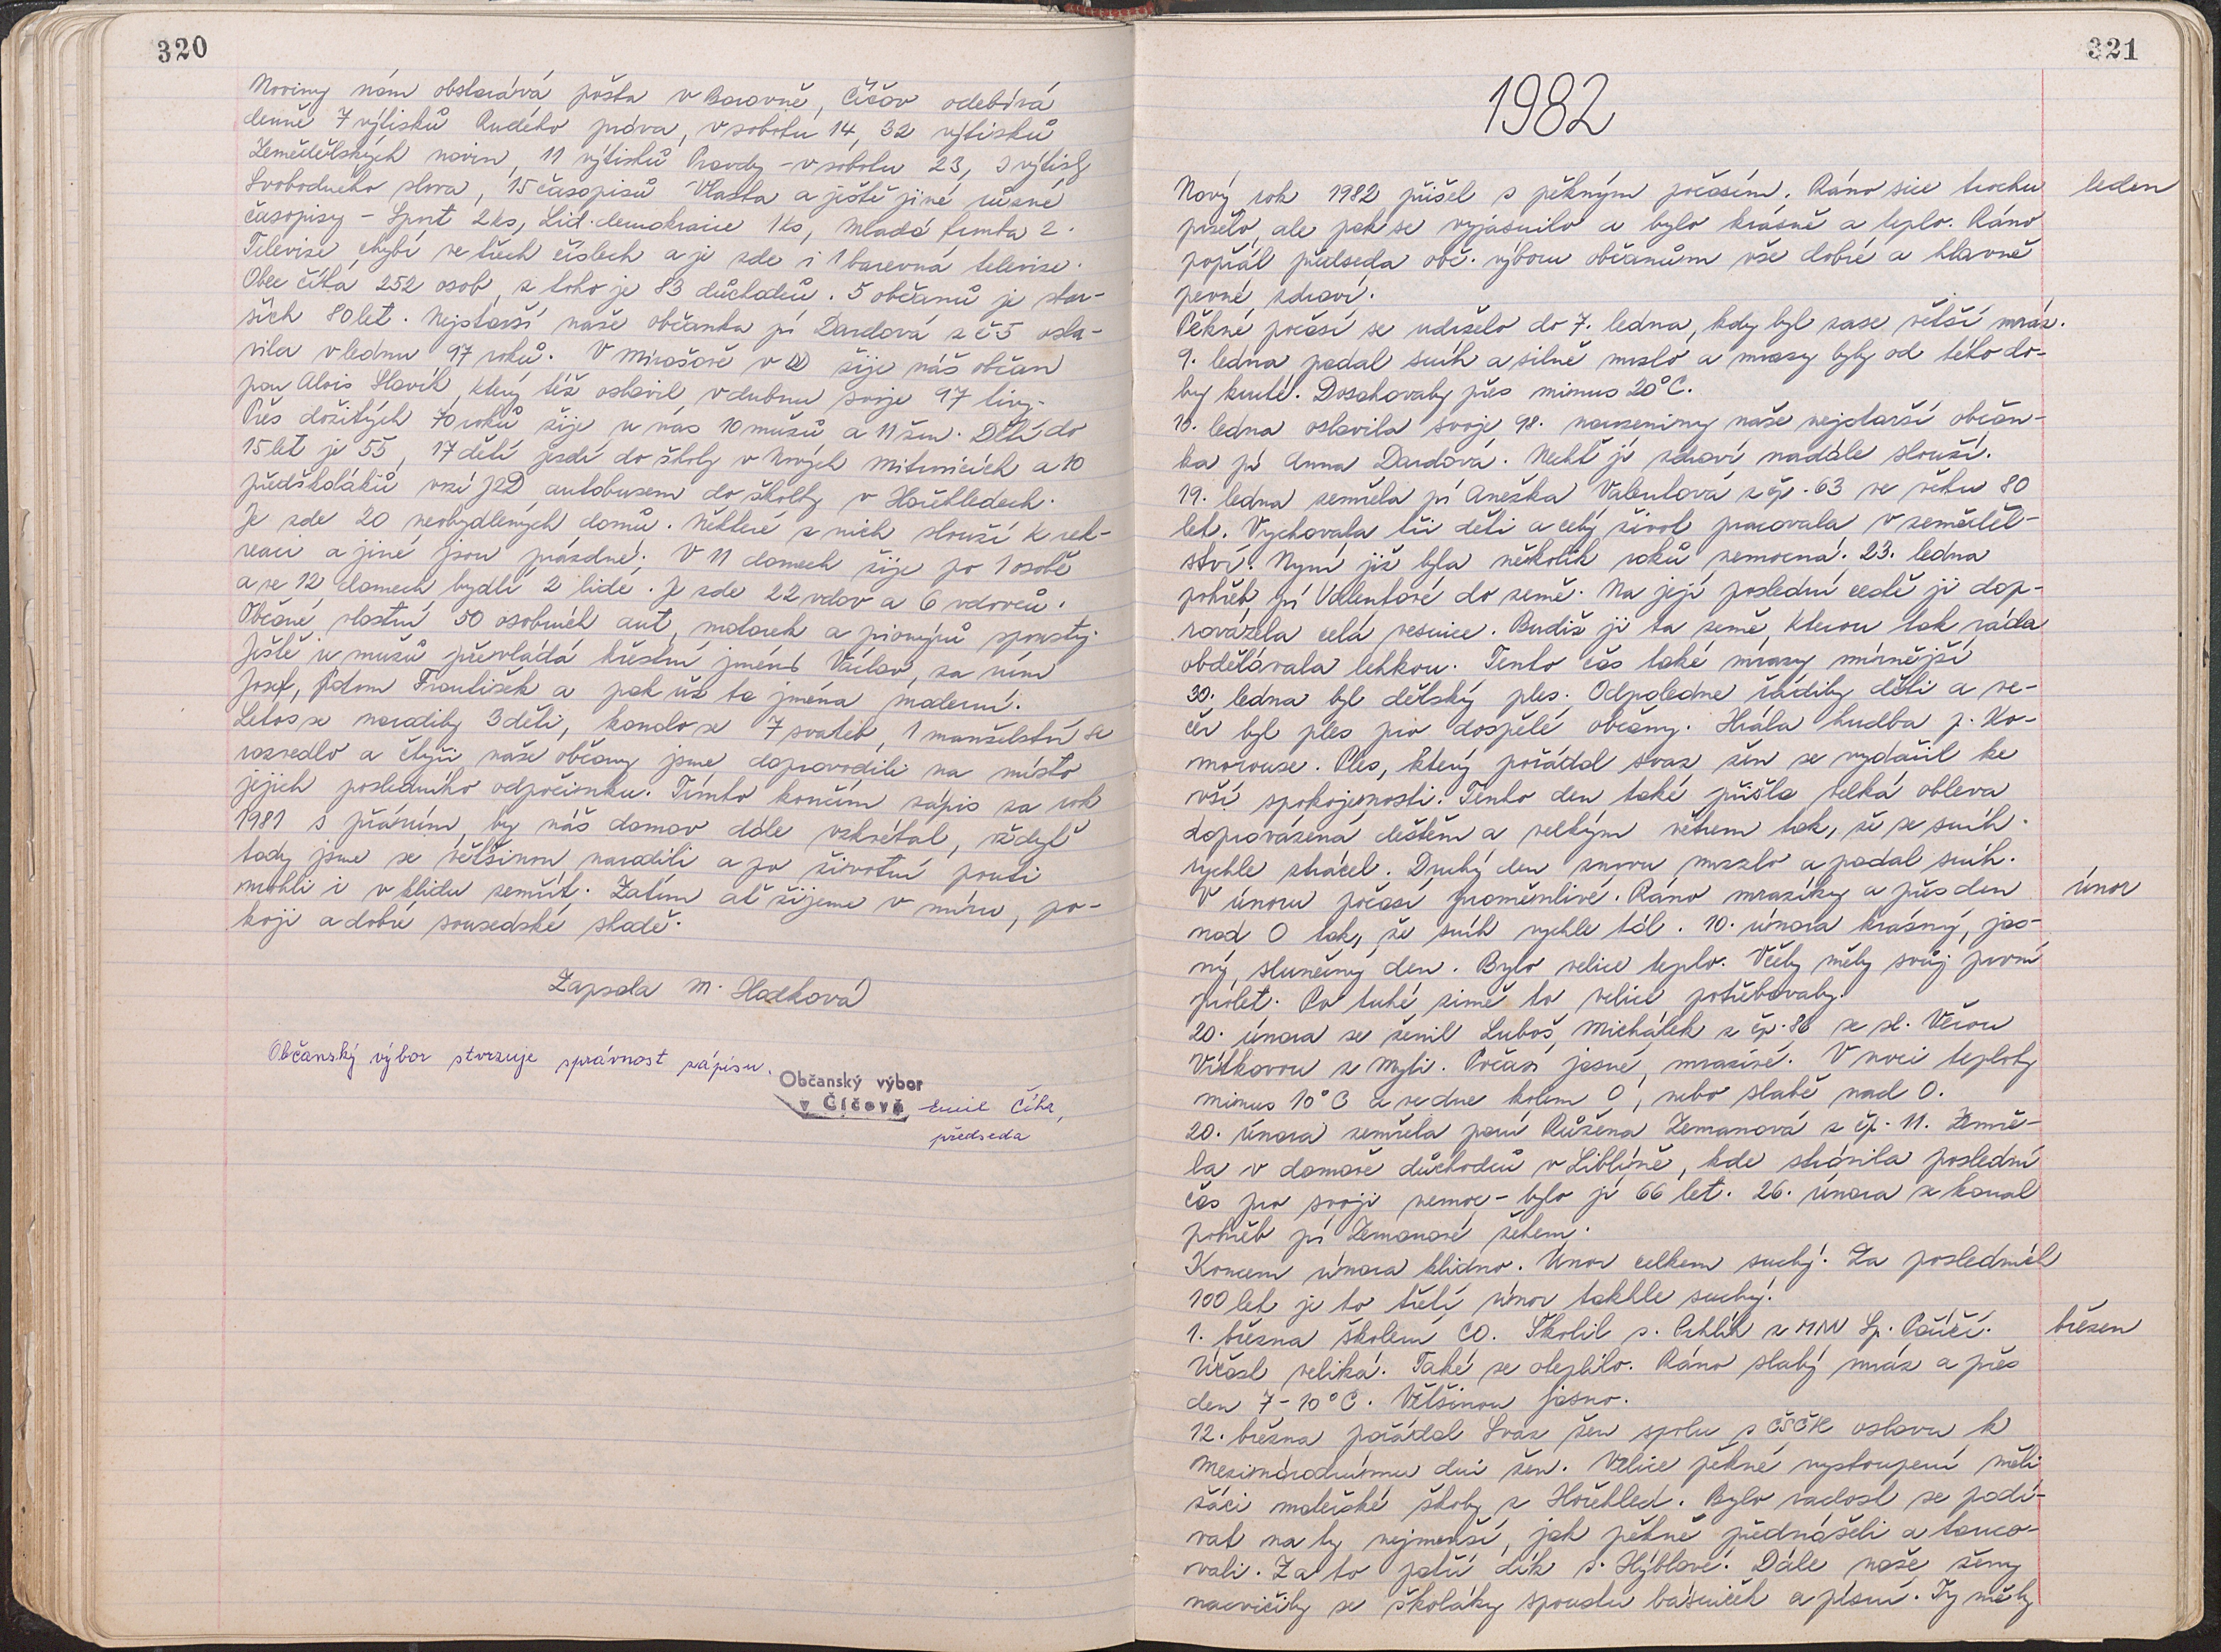 320
Noviny nám obstarává pošta v Borovně, Číčov odebírá
denně 7 výtisků Rudého práva, v sobotu 14, 32 výtisků
Zemědělských novin, 11 výtisků Pravdy - v sobotu 23, 3 výtisky
Svobodného slova, 15 časopisů Vlasta a ještě jiné různé
časopisy - Sport 2 ks, Lid. demokracie 1 ks, Mladá fronta 2.
Televize chybí ve třech číslech a je zde i 1 barevná televize.
Obec čítá 252 osob, z toho je 83 důchodců. 5 občanů je star-
ších 80 let. Nejstarší naše občanka pí Dardová z č 5 osla-
vila v lednu 97 roků. V Mirošově v DD žije náš občan
pan Alois Slavík, který též oslavil v dubnu svoje 97 tiny.
Přes dožitých 70 roků žije u nás 10 mužů a 11 žen. Dětí do
15 let je 55, 17 dětí jezdí do školy v Nových Mitrovicích a 10
předškoláků vozí JZD autobusem do školky v Hořehledech.
Je zde 20 neobydlených domů. Některé z nich slouží k rek-
reaci a jiné jsou prázdné. V 11 domech žije po 1 osobě
a ve 12 domech bydlí 2 lidé. Je zde 22 vdov a 6 vdovců.
Občané vlastní 50 osobních aut, motorek a pionýrů spousty.
Ještě u mužů převládá křestní jméno Václav, za ním
Josef, potom František a pak už ta jména moderní.
Letos se narodily 3 děti, konalo se 7 svateb, 1 manželství se
rozvedlo a čtyři naše občany jsme doprovodili na místo
jejich posledního odpočinku. Tímto končím zápis za rok
1981 s přáním, by náš domov dále vzkvétal, vždyť
tady jsme se většinou narodili a po životní pouti
mohli i v klidu zemřít. Zatím ať žijeme v míru, po-
koji a dobré sousedské shodě.
Zapsala M. Hodková
Občanský výbor stvrzuje správnost zápisu.
Občanský výbor
v Číčově Emil Cíha,
předseda
321
1982
Nový rok 1982 přišel s pěkným počasím. Ráno sice trochu leden
pršelo, ale pak se vyjasnilo a bylo krásně a teplo. Ráno
popřál předseda obč. výboru občanům vše dobré a hlavně
pevné zdraví.
Pěkné počasí se udrželo do 7. ledna, kdy byl zase větší mráz.
9. ledna padal sníh a silně mrzlo a mrazy byly od této do-
by kruté. Dosahovaly přes minus 20°C.
10. ledna oslavila svoje 98. narozeniny naše nejstarší občan-
ka pí Anna Dardová. Nechť jí zdraví nadále slouží.
19. ledna zemřela pí Anežka Valentová z čp. 63 ve věku 80
let. Vychovala tři děti a celý život pracovala v zeměděl-
ství. Nyní již byla několik roků nemocná. 23. ledna
pohřeb pí Valentové do země. Na její poslední cestě ji dop-
rovázela celá vesnice. Budiž jí ta země, kterou tak ráda
obdělávala lehkou. Tento čas také mrazy mírnější
30. ledna byl dětský ples. Odpoledne řádily děti a ve-
čer byl ples pro dospělé občany. Hrála hudba p. Ko-
morouse. Ples, který pořádal svaz žen se vydařil ke
vší spokojenosti. Tento den také přišla velká obleva
doprovázená deštěm a velkým větrem tak, že se sníh
rychle ztrácel. Druhý den znovu mrzlo a padal sníh.
V únoru počasí proměnlivé. Ráno mrazíky a přes den únor
nad 0 tak, že sníh rychle tál. 10. února krásný, jas-
ný, slunečný den. Bylo velice teplo. Včely měly svůj první
prolet. Po tuhé zimě to velice potřebovaly.
20. února se ženil Luboš Michálek z čp. 86 se sl. Věrou
Vítkovou z Mýti. Počasí jasné, mrazivé. V noci teploty
minus 10°C a ve dne kolem 0, nebo slabě nad 0.
20. února zemřela paní Růžena Zemanová z čp. 11. Zemře-
la v domově důchodců v Liblíně, kde strávila poslední
čas pro svoji nemoc - bylo jí 66 let. 26. února se konal
pohřeb pí Zemanové žehem.
Koncem února klidno. Únor celkem suchý. Za posledních
100 let je to třetí únor takhle suchý.
1. března školení CO. Školil s. Prhlík z MNV Sp. Poříčí. březen
Účast veliká. Také se oteplilo. Ráno slabý mráz a přes
den 7-10°C. Většinou jasno.
12. března pořádal Svaz žen spolu s ČSČK oslavu k
Mezinárodnímu dni žen. Velice pěkné vystoupení měli
žáci mateřské školy z Hořehled. Bylo radost se podí-
vat na ty nejmenší, jak pěkně přednášeli a tanco-
vali. Za to patří dík s. Hýblové. Dále naše ženy
nacvičily se školáky spoustu básniček a písní. Ty měly